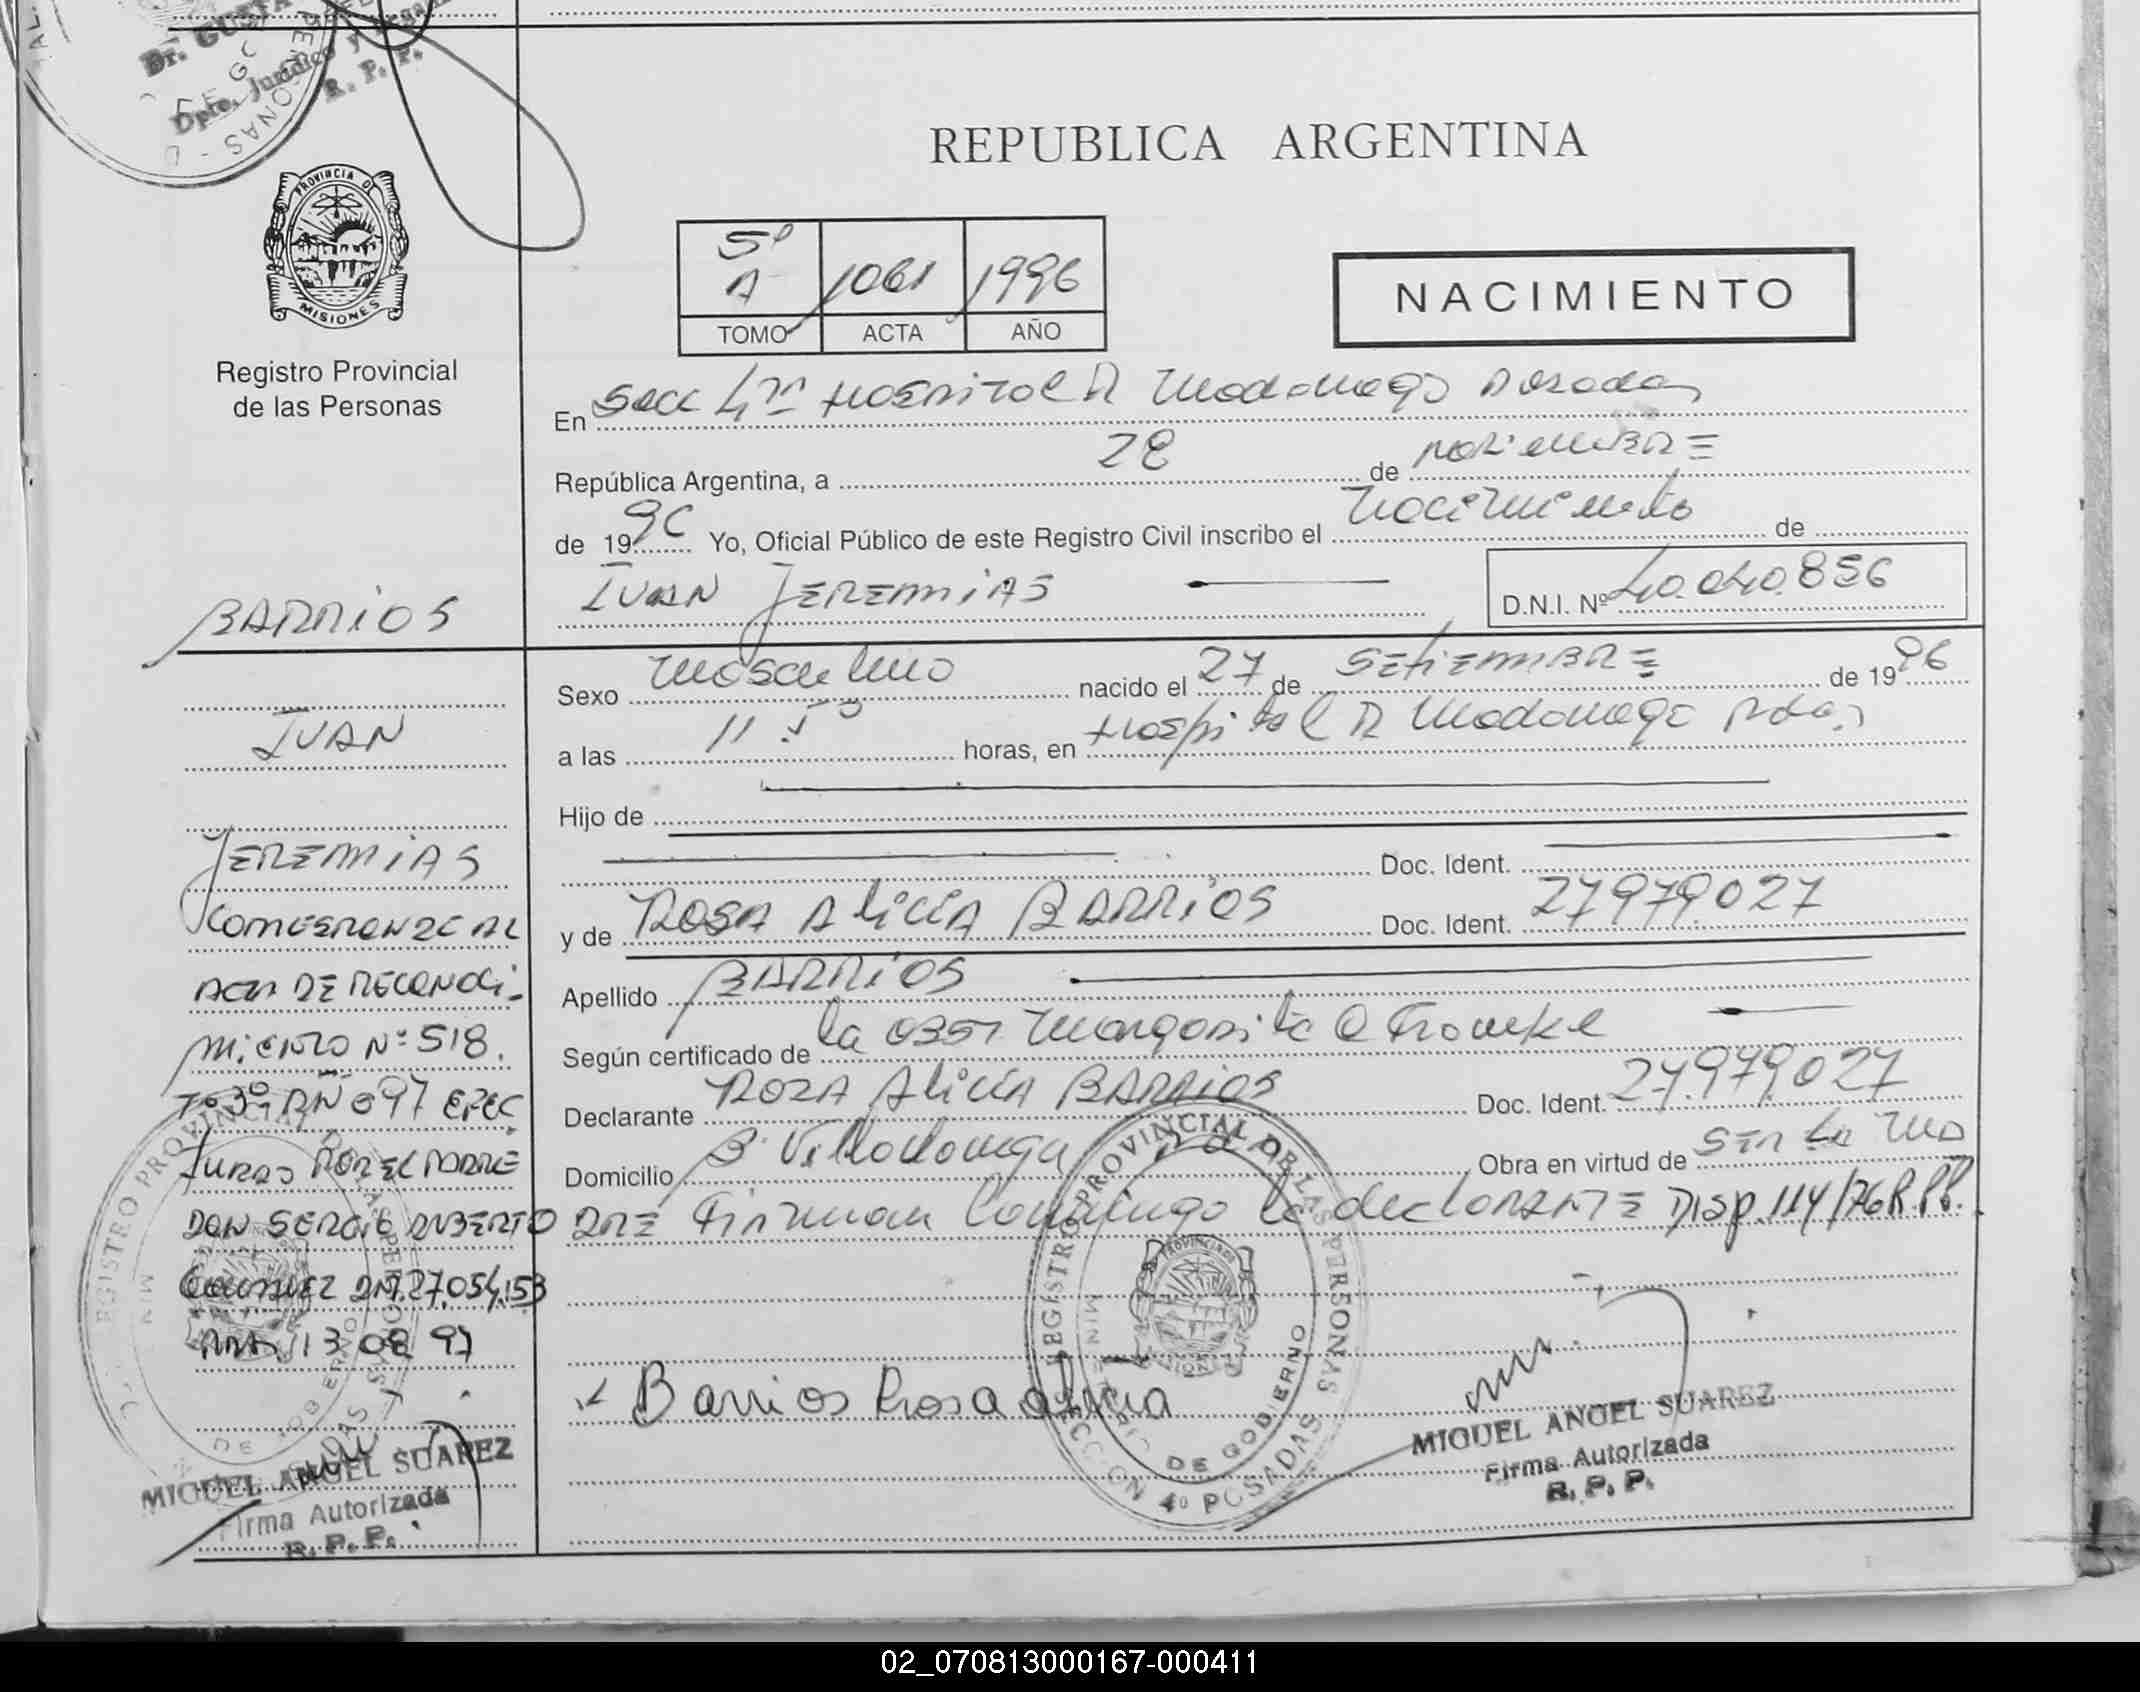 Dr. GUSTA
Dpto. Jurídico y Legal
R. P. P.
PROVINCIA DE
MISIONES
Registro Provincial
de las Personas
REPUBLICA ARGENTINA
5º A 1061 1996
TOMO ACTA AÑO
NACIMIENTO
En Secc 4ta Hospital R Madariaga Posadas
República Argentina, a 28 de noviembre
de 1996 Yo, Oficial Público de este Registro Civil inscribo el nacimiento de
IVAN JEREMIAS D.N.I. Nº 40.040.856
Sexo masculino nacido el 27 de SETIEMBRE de 1996
a las 11 horas, en Hospital R Madariaga Pdas
Hijo de
Doc. Ident.
y de ROSA ALICIA BARRIOS Doc. Ident. 27979027
Apellido BARRIOS
Según certificado de la Obst Margarita
Declarante ROSA ALICIA BARRIOS Doc. Ident. 27.979.027
Domicilio Bº Villalonga Obra en virtud de
Firman conmigo la declarante Disp. 114/76 R.P.P.
Barrios Rosa alicia
REGISTRO PROVINCIAL DE LAS PERSONAS
MINISTERIO DE GOBIERNO
SECCION 4º POSADAS
MIGUEL ANGEL SUAREZ
Firma Autorizada
R. P. P.
BARRIOS
IVAN
JEREMIAS
CORRESPONDE AL
ACTA DE RECONOCI-
MIENTO Nº 518.
Tº 3º AÑO 97 EFEC
TUADO POR EL PADRE
DON SERGIO RUBERTO
GONZALEZ DNI 27.054.153
13 08 97
REGISTRO PROVINCIAL DE LAS PERSONAS
DE GOBIERNO
MIGUEL ANGEL SUAREZ
Firma Autorizada
R. P. P.
02_070813000167-000411